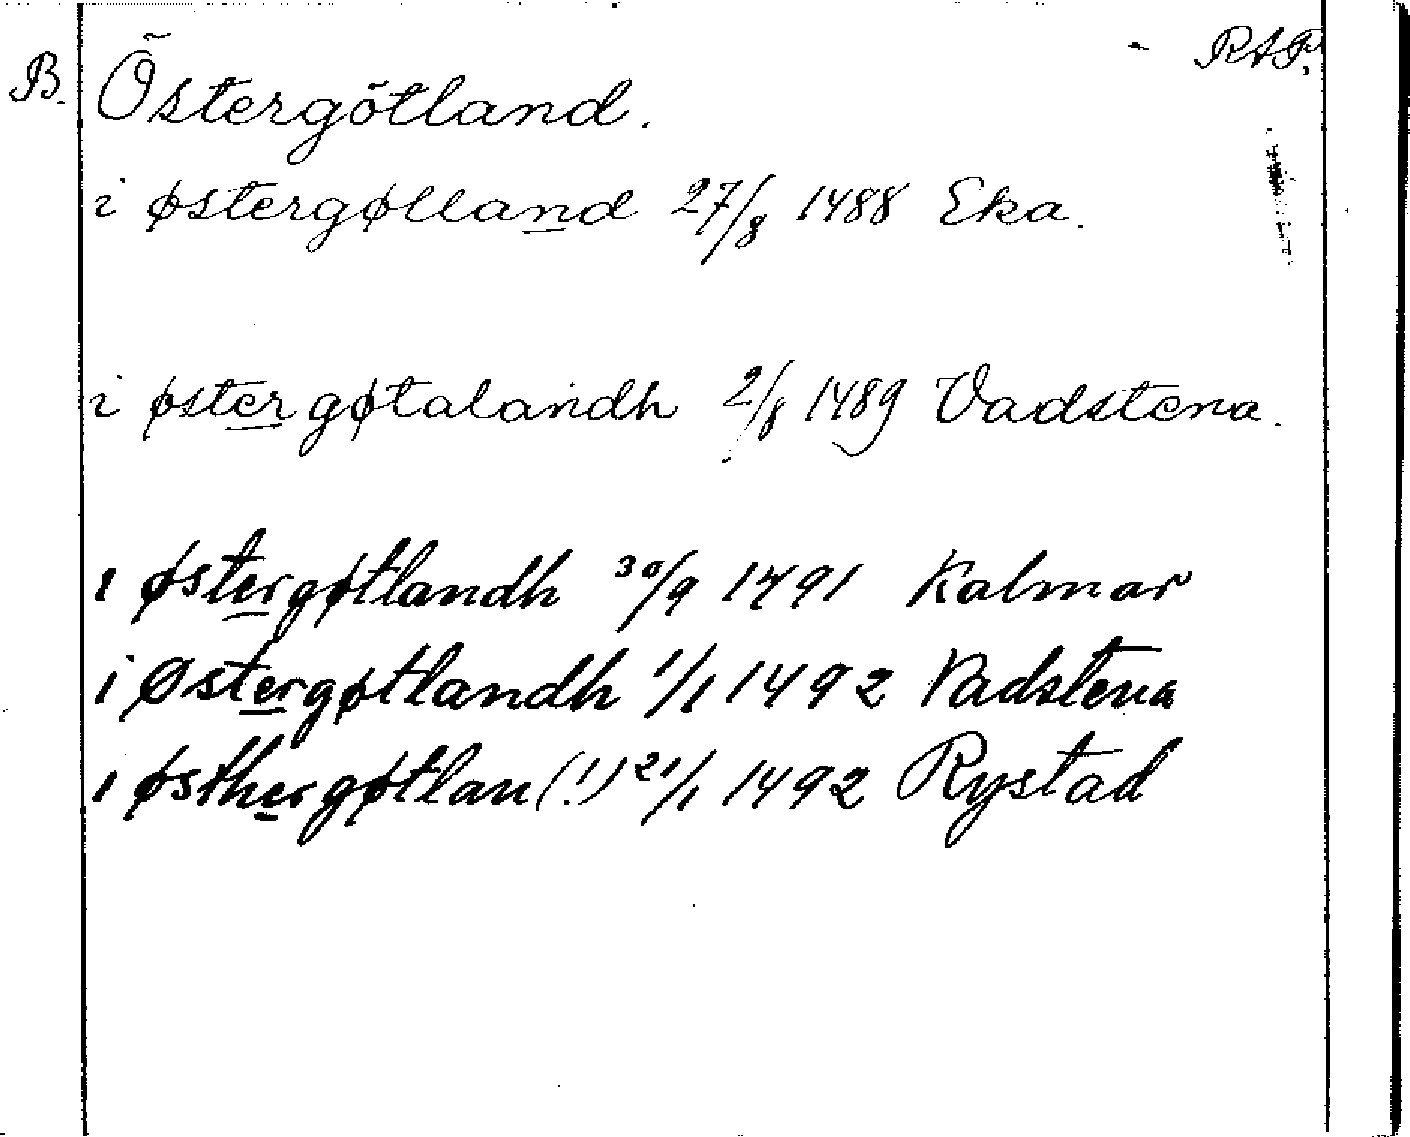 B. Östergötland. - RAP.
i østergølland 27/8 1488 Eka.
i østergøtalandh 2/8 1489 Vadstena.
i østergøtlandh 30/9 1491 Kalmar
i Østergøtlandh 1/1 1492 Vadstena
i østhergøtlan (!) 21/1 1492 Rystad